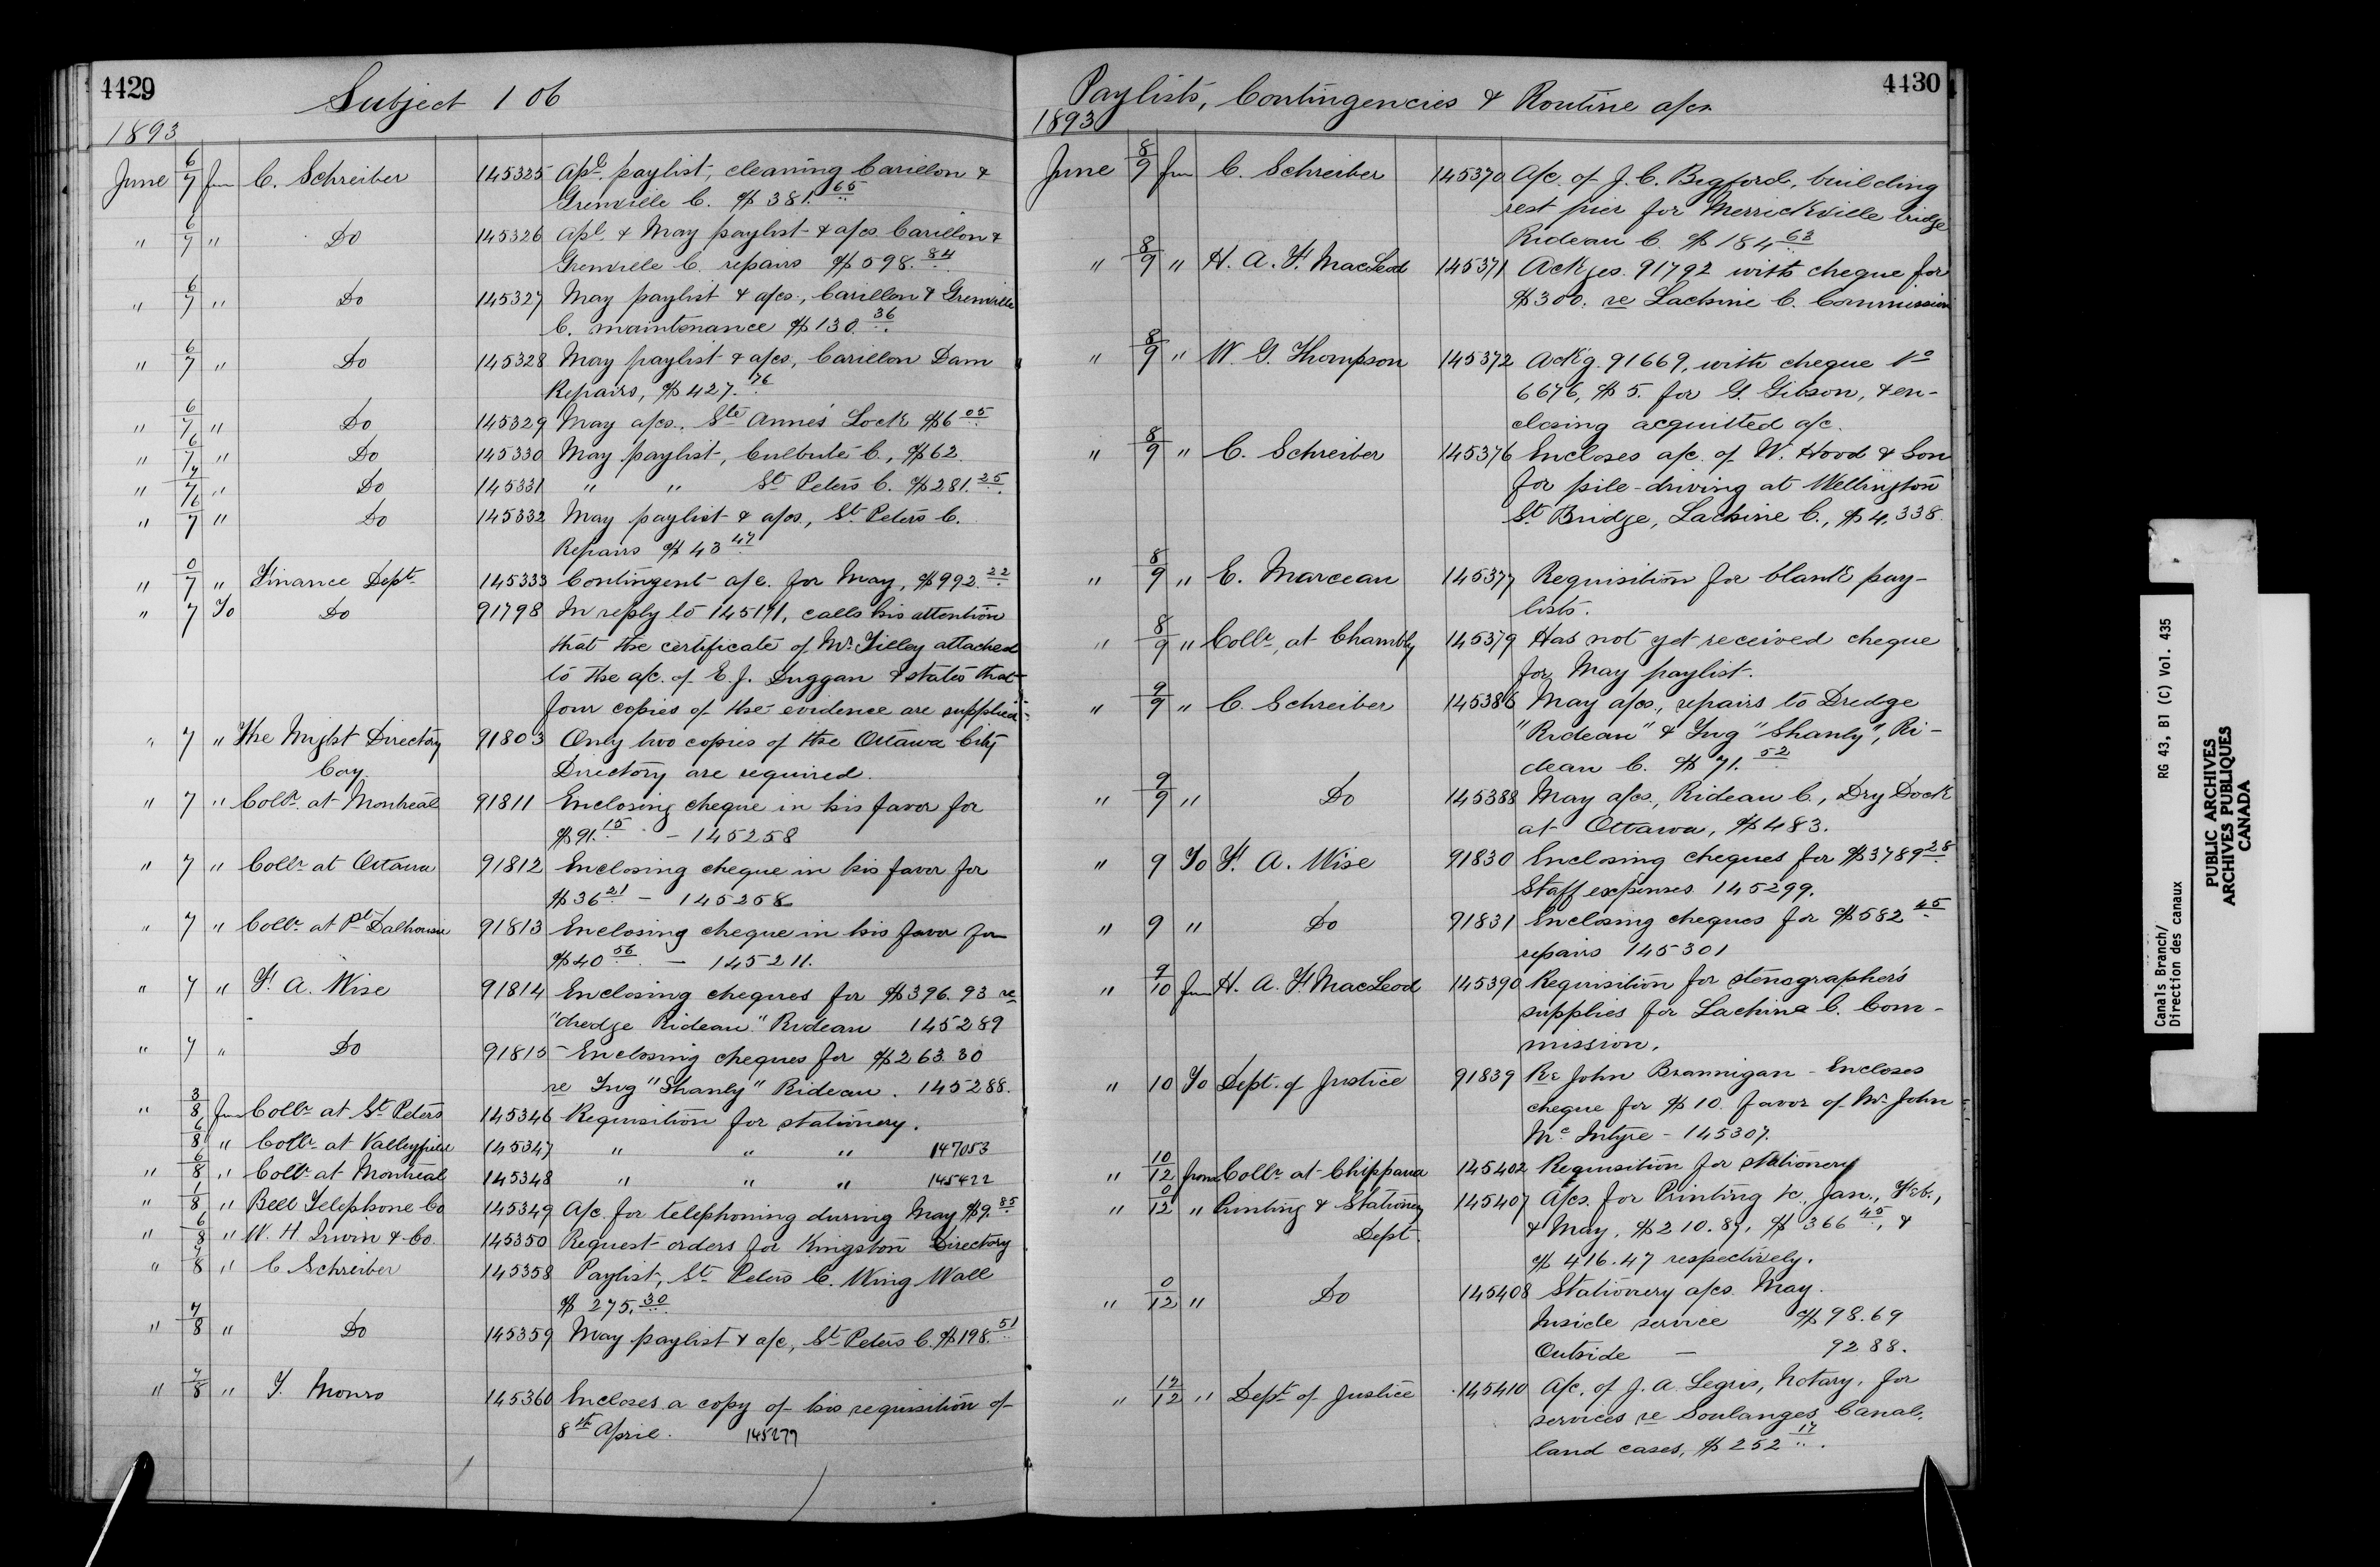 4429
Subject 106
1893
June 6/7 from C. Schreiber 145325 Apl. paylist, cleaning Carillon &
Grenville C. $381.65
" 6/7 " Do 145326 Apl. & May paylist & a/cs Carillon &
Grenville C. repairs $598.84
" 6/7 " Do 145327 May paylist & a/cs., Carillon & Grenville
C. maintenance $130.36
" 6/7 " Do 145328 May paylist & a/cs, Carillon Dam
Repairs, $427.76
" 6/7 " Do 145329 May a/cs. Ste Anne's Lock $6 05
" 6/7 " Do 145330 May paylist, Culbute C., $62.
" 7/7 " Do 145331 " " St. Peters C. $281.25
" 6/7 " Do 145332 May paylist & a/cs, St. Peters C.
Repairs $43 47
" 0/7 " Finance Dept. 145333 Contingent a/c. for May, $992.22
" 7 To Do 91798 In reply to 145171, calls his attention
that the certificate of Mr. Tilley attached
to the a/c. of E. J. Duggan & states that
four copies of the evidence are supplied.
" 7 " The Might Directory 91803 Only two copies of the Ottawa City
Coy. Directory are required.
" 7 " Collr. at Montreal 91811 Enclosing cheque in his favor for
$91.15 – 145258
" 7 " Collr. at Ottawa 91812 Enclosing cheque in his favor for
$36 21 – 145258
" 7 " Collr. at Pt. Dalhousie 91813 Enclosing cheque in his favor for
$40 56 – 145211.
" 7 " F. A. Wise 91814 Enclosing cheques for $396.93 re
"dredge Rideau" Rideau 145289
" 7 " Do 91815 Enclosing cheques for $263.30
re Tug "Shanly" Rideau. 145288.
" 3/8 from Collr. at St. Peters 145346 Requisition for stationery.
6/8 " Collr. at Valleyfield 145347 " " " 147053
" 6/8 " Collr. at Montreal 145348 " " " 145422
" 1/8 " Bell Telephone Co 145349 A/c for telephoning during May $9.85
" 6/8 " W. H. Irwin & Co. 145350 Request orders for Kingston Directory
" 7/8 " C Schreiber 145358 Paylist, St. Peters C. Wing Wall
$275.30
" 7/8 " Do 145359 May paylist & a/c, St. Peters C. $198.51
" 7/8 " T. Monro 145360 Encloses a copy of his requisition of
8th April. 145279
4430
Paylists, Contingencies & Routine a/cs.
1893
June 8/9 from C. Schreiber 145370 A/c. of J. C. Begford, building
rest pier for Merrickville bridge
Rideau C. $184 63
" 8/9 " H. A. F. MacLeod 145371 Ackges. 91792 with cheque for
$300. re Lachine C. Commission
" 8/9 " W. G. Thompson 145372 Ack'g. 91669, with cheque No
6676, $5. for G. Gibson, & en-
closing acquitted a/c.
" 8/9 " C. Schreiber 145376 Encloses a/c. of W. Hood & Son
for pile-driving at Wellington
St. Bridge, Lachine C., $4,338.
" 8/9 " E. Marceau 145377 Requisition for blank pay-
lists.
" 8/9 " Collr. at Chambly 145379 Has not yet received cheque
for May paylist.
" 9/9 " C. Schreiber 145386 May a/cs., repairs to Dredge
"Rideau" & Tug "Shanly", Ri-
deau C. $71.52
" 9/9 " Do 145388 May a/cs., Rideau C., Dry Dock
at Ottawa, $483.
" 9 To F. A. Wise 91830 Enclosing cheques for $3789 28
Staff expenses 145299.
" 9 " Do 91831 Enclosing cheques for $582 45
repairs 145301
" 9/10 from H. A. F. MacLeod 145390 Requisition for stenographer's
supplies for Lachine C. Com-
mission.
" 10 To Dept. of Justice 91839 Re John Brannigan – Encloses
cheque for $10. favor of Mr. John
Mc Intyre – 145307.
" 10/12 from Collr. at Chippawa 145402 Requisition for stationery
" 0/12 " Printing & Stationery 145407 A/cs. for Printing &c., Jan., Feb.,
Dept. & May, $210.87, $366 45, &
$416.47 respectively.
" 0/12 " Do 145408 Stationery a/cs. May.
Inside service $98.69
Outside – 92.88.
" 12/12 " Dept. of Justice 145410 A/c. of J. A. Legris, Notary, for
services re Soulanges Canal,
land cases, $252 17.
Canals Branch/ RG 43, B1 (C) Vol. 435
Direction des canaux
PUBLIC ARCHIVES
ARCHIVES PUBLIQUES
CANADA